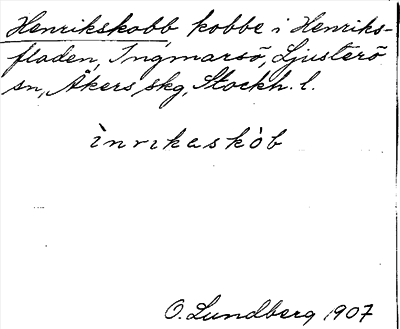 Henrikskobb kobbe i Henriks-
fladen, Ingmarsö, Ljusterö
sn, Åkers skg, Stockh. l.
ìnrikaskòb
O. Lundberg 1907